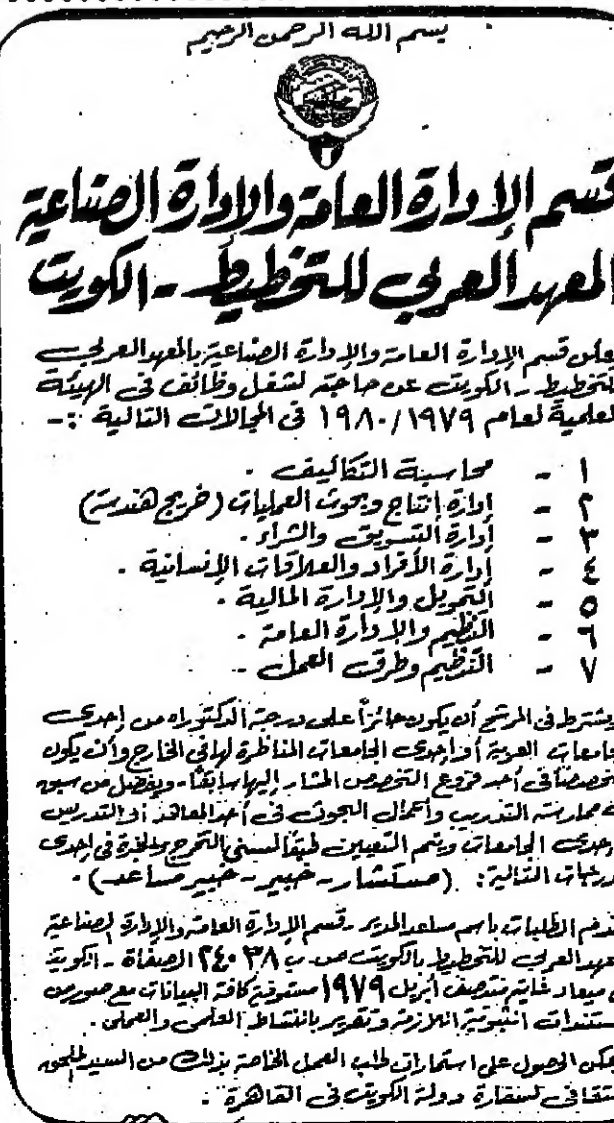 بسم الله الرحمن الرحيم
قسم الإدارة العامة والإدارة الصناعية
المعهد العربي للتخطيط - الكويت
يعلن قسم الإدارة العامة والإدارة الصناعية بالمعهد العربي
للتخطيط - الكويت عن حاجته لشغل وظائف فى الهيئة
العلمية لعام ١٩٧٩/١٩٨٠ فى المجالات التالية :-
١ - محاسبة التكاليف .
٢ - إدارة إنتاج وبحوث العمليات (خريج هندسة)
٣ - إدارة التسويق والشراء .
٤ - إدارة الأفراد والعلاقات الإنسانية .
٥ - التمويل والإدارة المالية .
٦ - التنظيم والإدارة العامة .
٧ - التنظيم وطرق العمل .
يشترط فى المرشح أن يكون حائزاً على درجة الدكتوراه من إحدى
جامعات العربية أو إحدى الجامعات المناظرة لها فى الخارج وأن يكون
متخصصاً فى أحد فروع التخصص المشار إليها سابقاً - ويفضل من سبق
ممارسة التدريب وأعمال البحوث فى أحد المعاهد أو التدريس
إحدى الجامعات ويتم التعيين طبقاً لسنى التخرج والخبرة فى إحدى
درجات التالية : (مستشار - خبير - خبير مساعد) .
تقدم الطلبات باسم مساعد المدير - قسم الإدارة العامة والإدارة الصناعية
المعهد العربى للتخطيط بالكويت ص ب ٢٤٠٣٨ الصفاة - الكويت
ميعاد غايته منتصف أبريل ١٩٧٩ مستوفية كافة البيانات مع صور من
مستندات الثبوتية اللازمة وتقرير بالنشاط العلمى والعملى .
يمكن الحصول على استمارات طلب العمل الخاصة بذلك من السيد الملحق
الثقافى لسفارة دولة الكويت فى القاهرة .